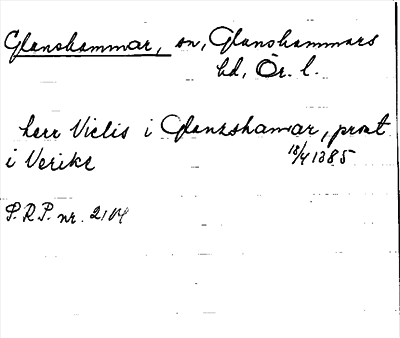 Glanshammar, sn, Glanshammars
hd, Ör. l.
herr Viclis i Glanzshamar, prost
i Verike 18/4 1385
S.R.P. nr. 2104